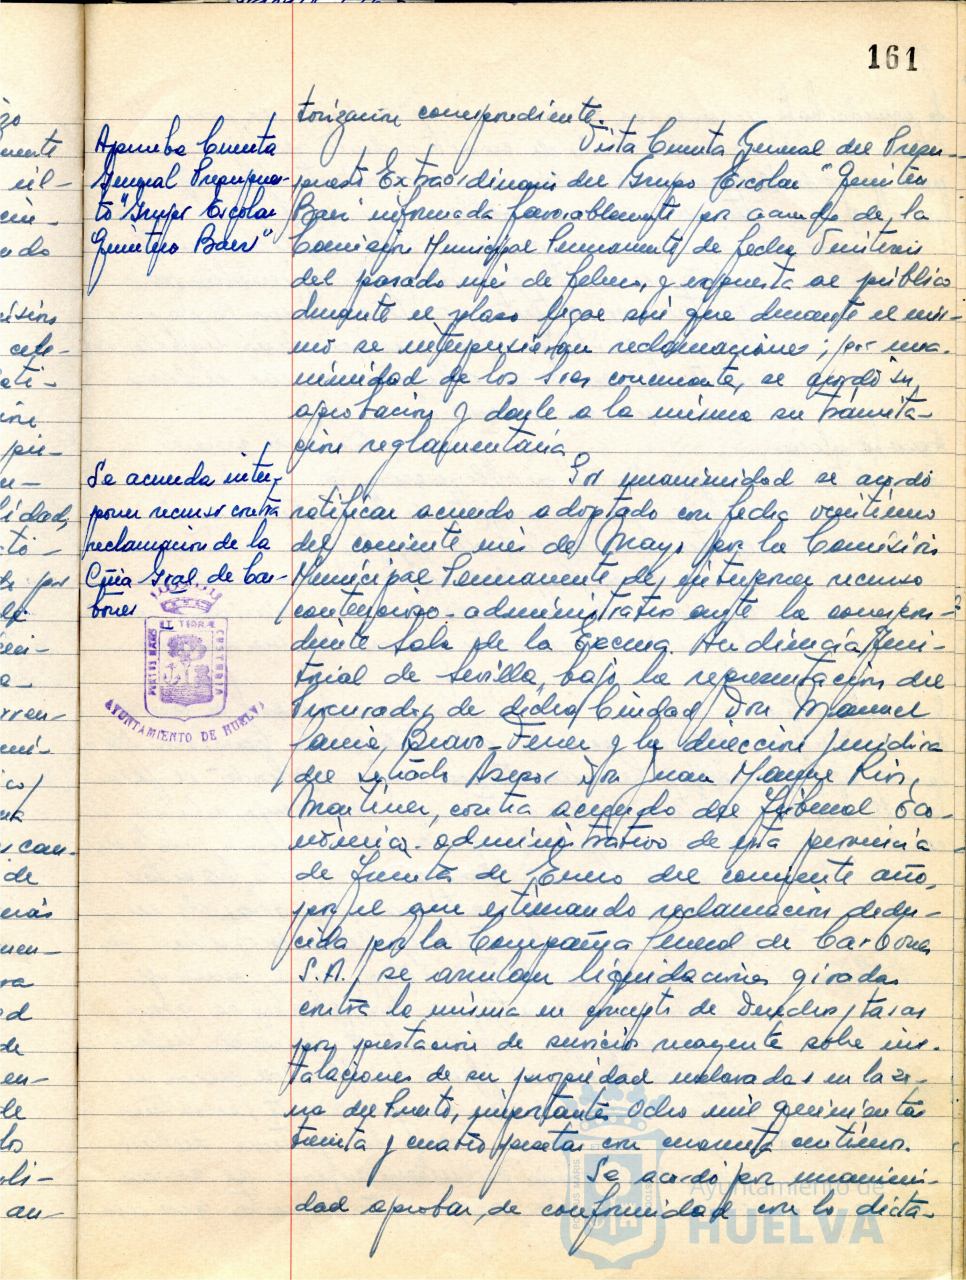 161
torización correspondiente.
Aprueba Cuenta
General Presupues-
to "Grupo Escolar
Quintero Baez"
Vista Cuenta General del Presu-
puesto Extraordinario del Grupo Escolar "Quintero
Baez" informada favorablemente por acuerdo de la
Comisión Municipal Permanente de fecha
del pasado mes de febrero, y expuesta al público
durante el plazo legal sin que durante el mis-
mo se interpusieran reclamaciones; por una-
nimidad de los Sres concurrentes, se acordó su
aprobación y darle a la misma su tramita-
ción reglamentaria
Se acuerda inter-
poner recurso contra
reclamación de la
Cñia Gral. de Car-
bones
Por unanimidad se acordó
ratificar acuerdo adoptado con fecha
del corriente mes de Mayo por la Comisión
Municipal Permanente de interponer recurso
contencioso-administrativo ante la correspon-
diente Sala de la Excma. Audiencia Terri-
torial de Sevilla, bajo la representación del
Procurador de dicha Ciudad Don Manuel
Bravo-Ferrer y la dirección jurídica
del Letrado Asesor Don Juan Manuel
Martínez, contra acuerdo del Tribunal Eco-
nómico-administrativo de esta provincia
de treinta de Enero del corriente año,
por el que estimando reclamación dedu-
cida por la Compañía General de Carbones
S.A., se anulan liquidaciones giradas
contra la misma en concepto de Derechos y tasas
por prestación de servicios recayente sobre ins-
talaciones de su propiedad enclavadas en la zo-
na del Puerto, importantes Ocho mil quinientas
treinta y cuatro pesetas con cuarenta céntimos.
Se acordó por unanimi-
dad aprobar, de conformidad con lo dicta-
AYUNTAMIENTO DE HUELVA
Ayuntamiento de
HUELVA